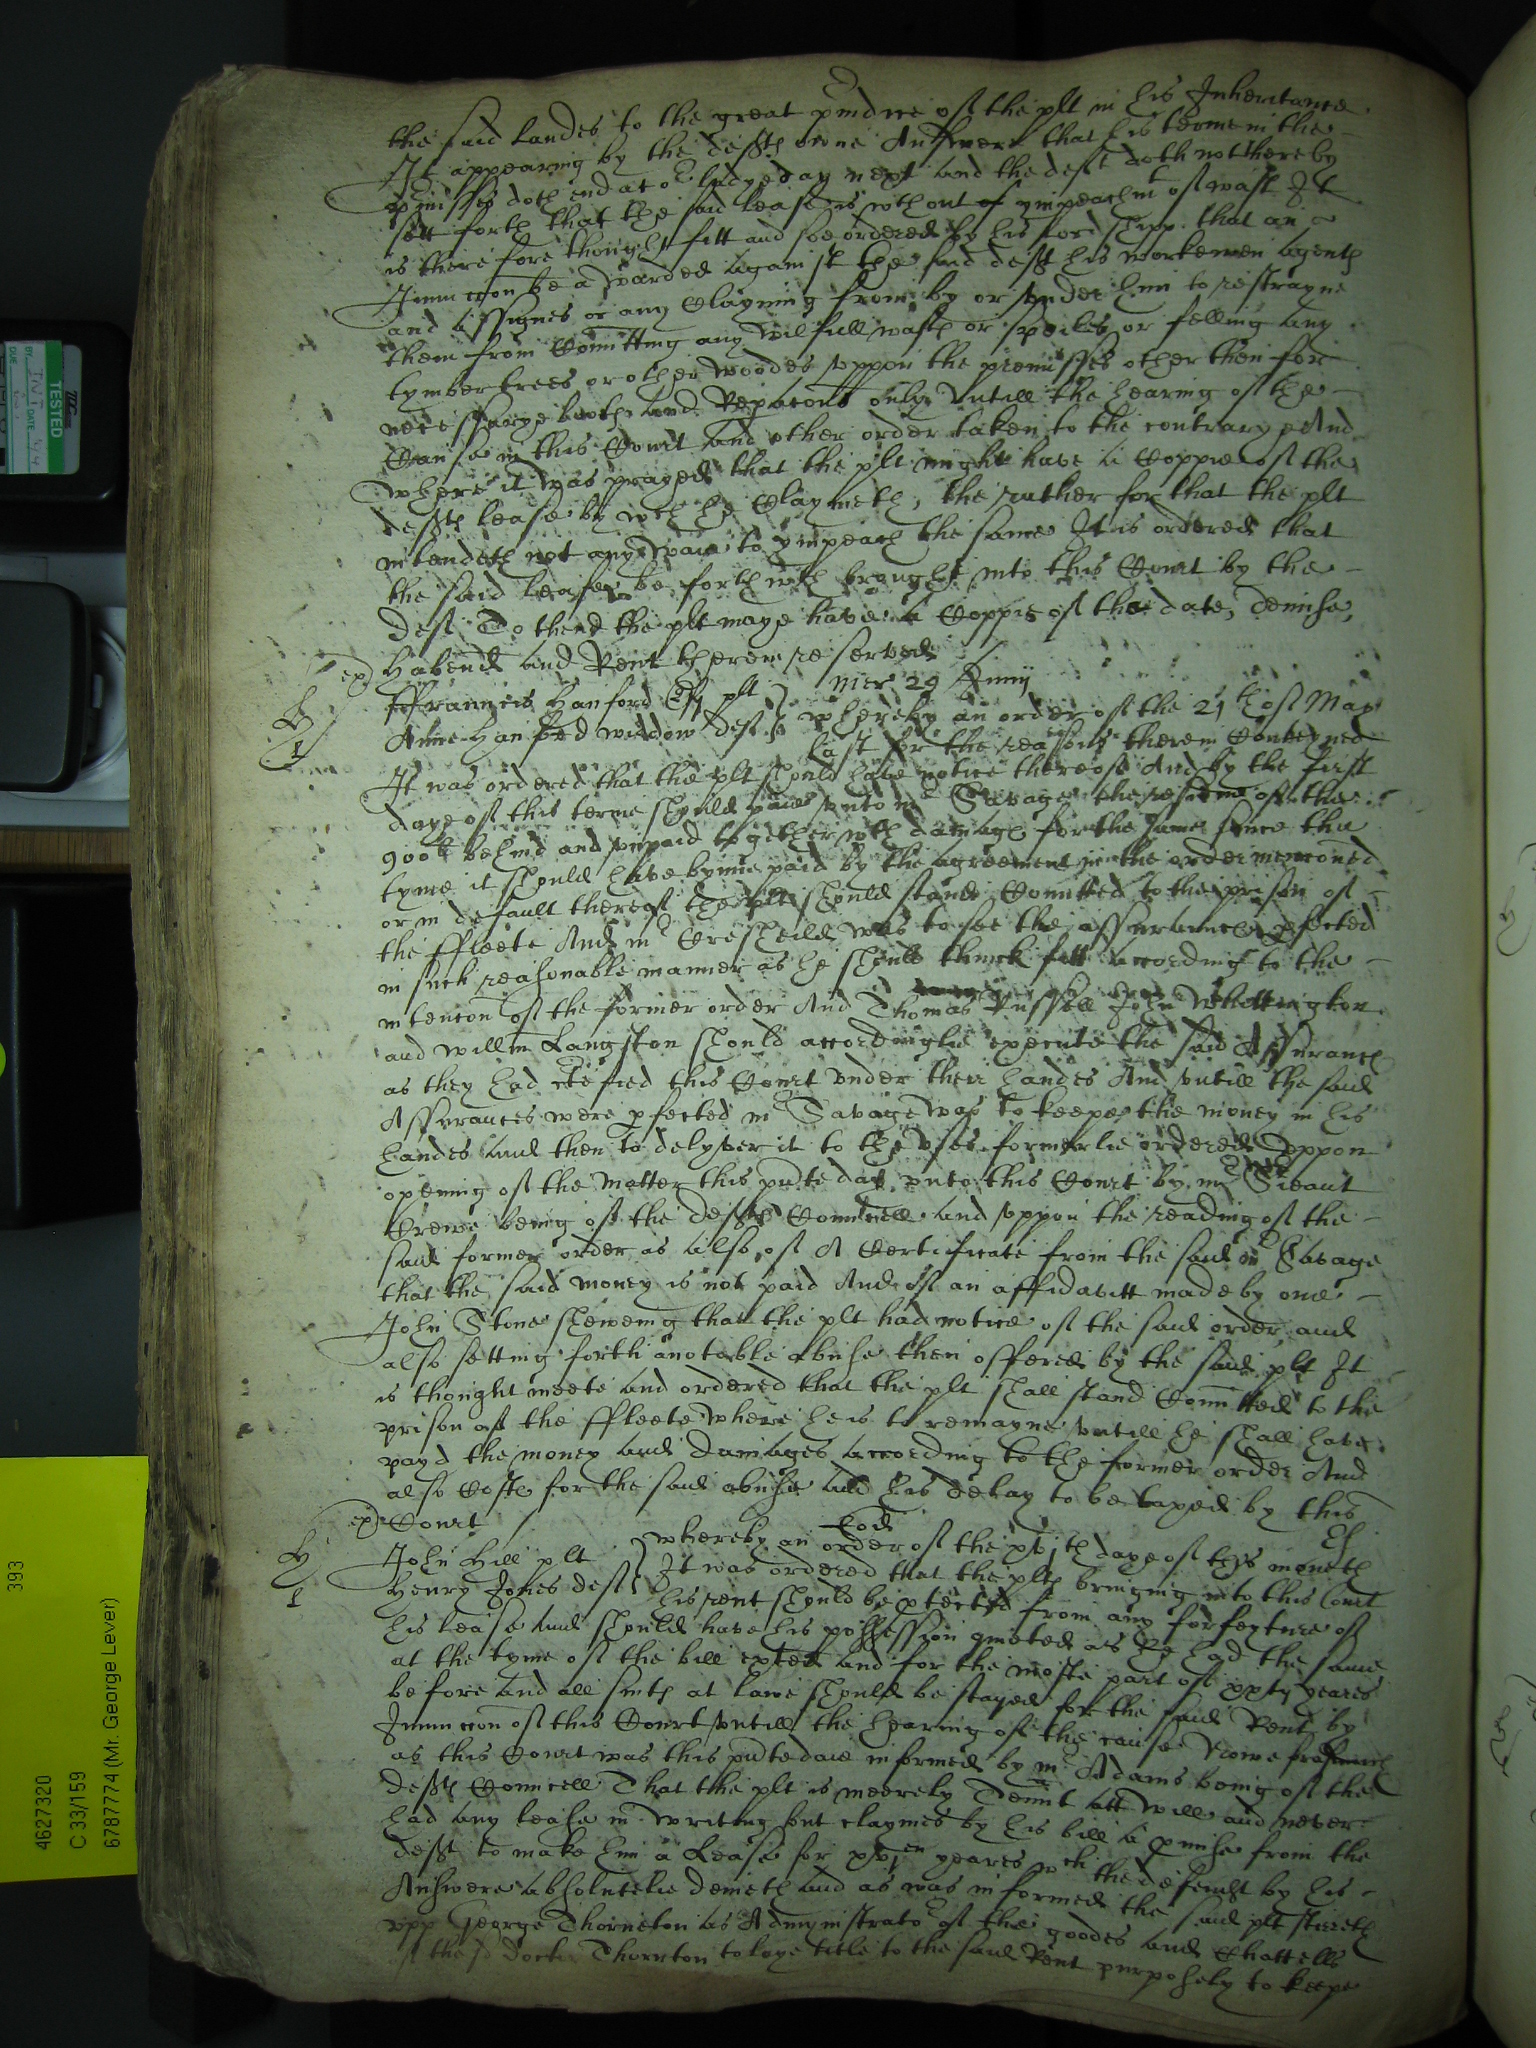 the said landes to the great preiudice of the plt in his Inheritance
It appearing by the defts owne Answere that his terme in the
premisses doth end at or Ladyeday next and the deft doth not thereby
sett forth that the said lease is wthout ympeachmt of wast It
is therefore thought fitt and soe ordered by his lordshipp that an
Iniunccon be awarded against the said deft his workemen agents
and assignes or any Clayming from by or vnder him to restrayne
them from Comitting any wilfull wast or spoiles or felling any
tymber trees or other woodes vppon the premisses other then for
necessarye boote and Repacons only vntill the hearing of the
Cause in this Court and other order taken to the contrarye And
where it was prayed that the plt might have a Coppie of the
defts lease by wch he Claymeth, the rather for that the plt
intendeth not any waie to ympeach the same It is ordered that
the said lease be forthwth brought into this Court by the
deft To thend the plt maye have a Coppie of the date, demise,
Habend and Rent therein reserved
exp
ffrauncis Hanford Esq plt
Anne Hanford widdow deft
mer 29 Iunij
whereby an order of the 21th of May
last for the reasons therein Conteyned
It was ordered that the plt should have notice thereof And by the first
daye of this terme should paie vnto mr Savage the residue of the
900li behind and vnpaid together wth damage for the same since the
tyme it should have bynne paid by the agreement in the order mencioned
or in default thereof the plt should stand Comitted to the prison of
the ffleete And mr Cresheild was to see the assurances pfected
in such reasonable manner as he should thinck fitt according to the
intencon of the former order And Thomas Russell John Whettington
and Willm Langston should accordinglie execute the said Assurances
as they had ctefied this Court vnder their handes And vntill the said
Assurances were pfected mr Savage was to keepe the money in his
handes and then to delyver it to the vses formerlie ordered Vppon
opening of the Matter this pnte day vnto this Court by mr Sieant
Crewe being of the defts Councell and vppon the reading of the
said former order as also of A Certificate from the said mr Savage
that the said money is not paid And of an affidavitt made by one
John Stone shewing that the plt had notice of the said order and
also setting forth a notable abuse then offered by the said plt It
is thought meete and ordered that the plt shall stand Comitted to the
prison of the ffleete where he is to remayne vntill he shall have
payd the money and damages according to the former order And
also Costes for the said abuse and his delay to be taxed by this
Court
exp
Eod
John Hill plt
Henry Jones deft
whereby an order of the xvjth daye of this moneth
It was ordered that the plts bringing into this Court
his rent should be ptected from any forfeyture of
his lease and should have his possession quieted as he had the same
at the tyme of the bill exhted and for the moste part of yeares
before and all suits at lawe should be stayed for the said Rent by
Iniunccon of this Court vntill the hearing of the cause Nowe forasmuch
as this Court was this pnte daie informed by mr Adams being of the
defts Councell That the plt is meerely Tennt att will and never
had any lease in writing but claymes by his bill a pmise from the
deft to make him a Lease for yeares wch the defendt by his
Answere absolutelie denieth and as was informed the said plt stirreth
vpp George Thorneton as Admynistrator of the goodes and Chattells
of the sd Doctor Thornton to laye title to the said Rent purposely to keepe
TESTED
393
4627320
C 33/159
6787774 (Mr. George Lever)